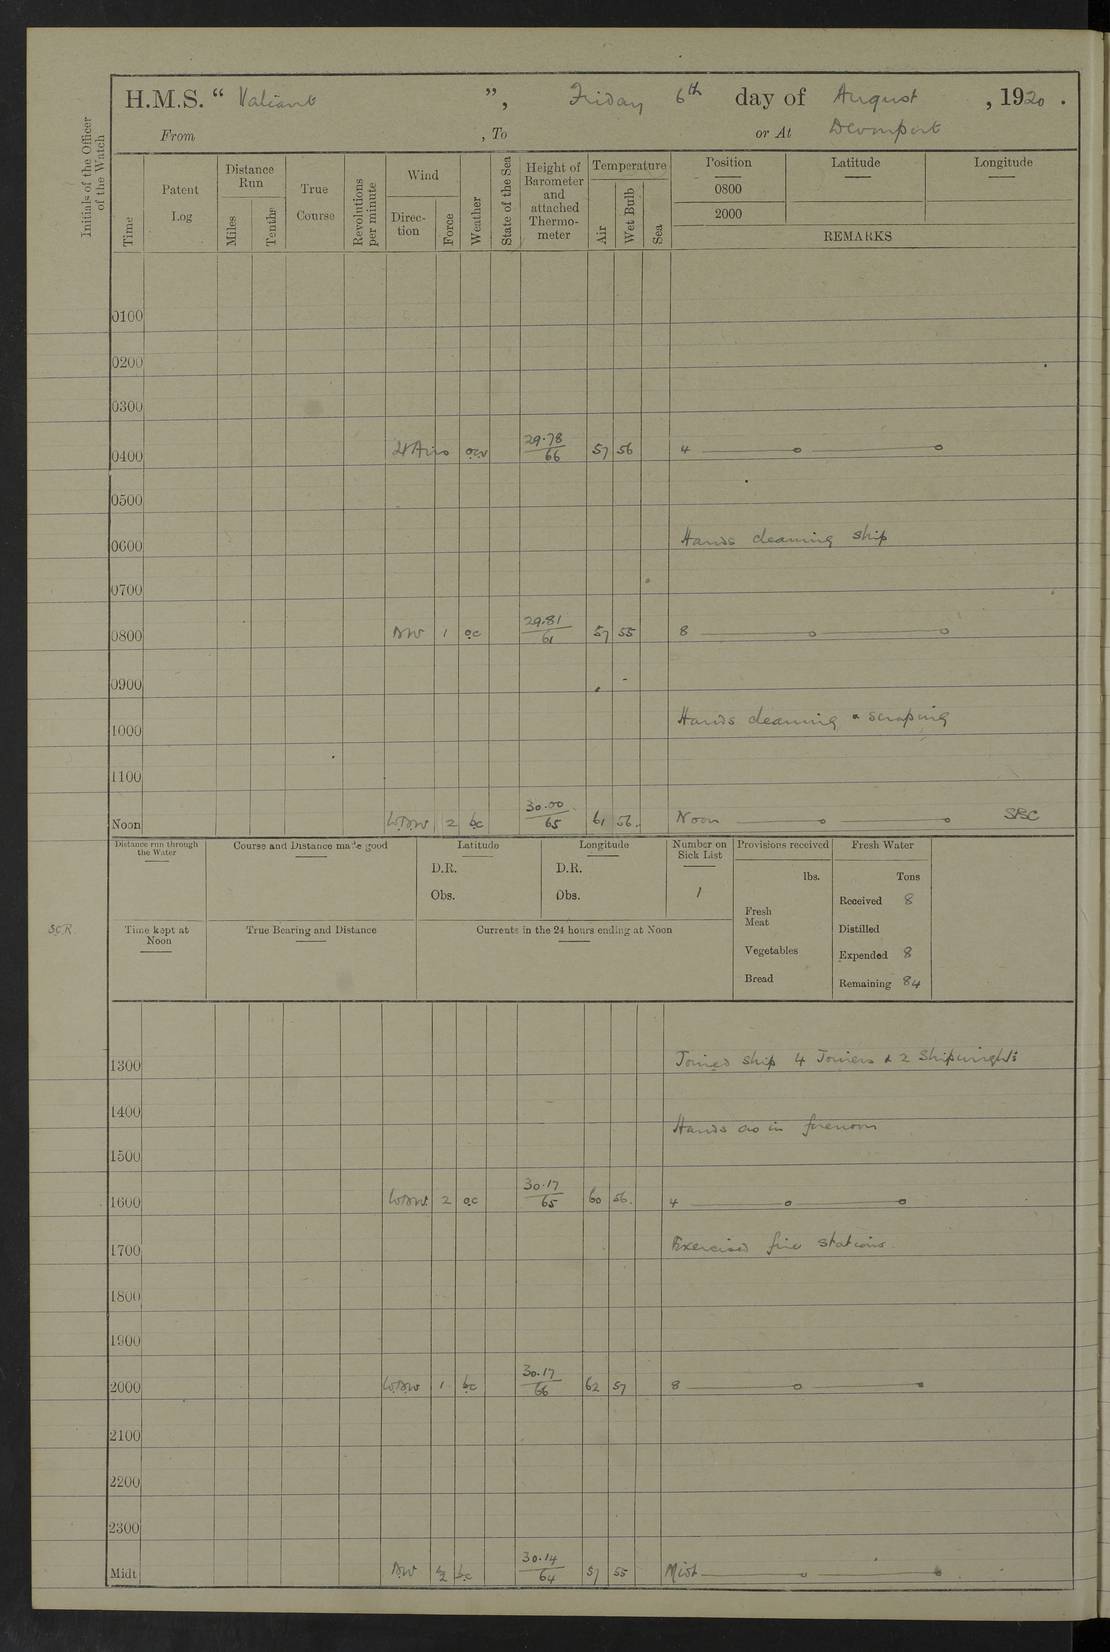 H.M.S. “ Valiant ”, Friday 6th day of August , 1920 .
From , To or At Devonport
Initials of the Officer of the Watch
Time
Patent Log
Distance Run
Miles
Tenths
True Course
Revolutions per minute
Wind
Direction
Force
Weather
State of the Sea
Height of Barometer and attached Thermometer
Temperature
Air
Wet Bulb
Sea
Position Latitude Longitude
0800
2000
REMARKS
0100
0200
0300
0400 Lt Airs 29.78/66 57 56 4
0500
0600 Hands cleaning ship
0700
0800 NW 1 oc 29.81/61 57 55 8
0900
1000 Hands cleaning & scraping
1100
Noon WNW 2 bc 30.00/65 61 56. Noon
Distance run through the Water
Course and Distance made good
Latitude
D.R.
Obs.
Longitude
D.R.
Obs.
Number on Sick List
1
Provisions received
lbs.
Fresh Meat
Vegetables
Bread
Fresh Water
Tons
Received 8
Distilled
Expended 8
Remaining 84
Time kept at Noon
True Bearing and Distance
Currents in the 24 hours ending at Noon
1300 Joined ship 4 Joiners & 2 Shipwrights
1400 Hands as in forenoon
1500
1600 WNW 2 oc 30.17/65 60 56. 4
1700 Exercised fire stations.
1800
1900
2000 WNW 1 bc 30.17/66 62 57 8
2100
2200
2300
Midt NW ½ bc 30.14/64 57 55 Midt